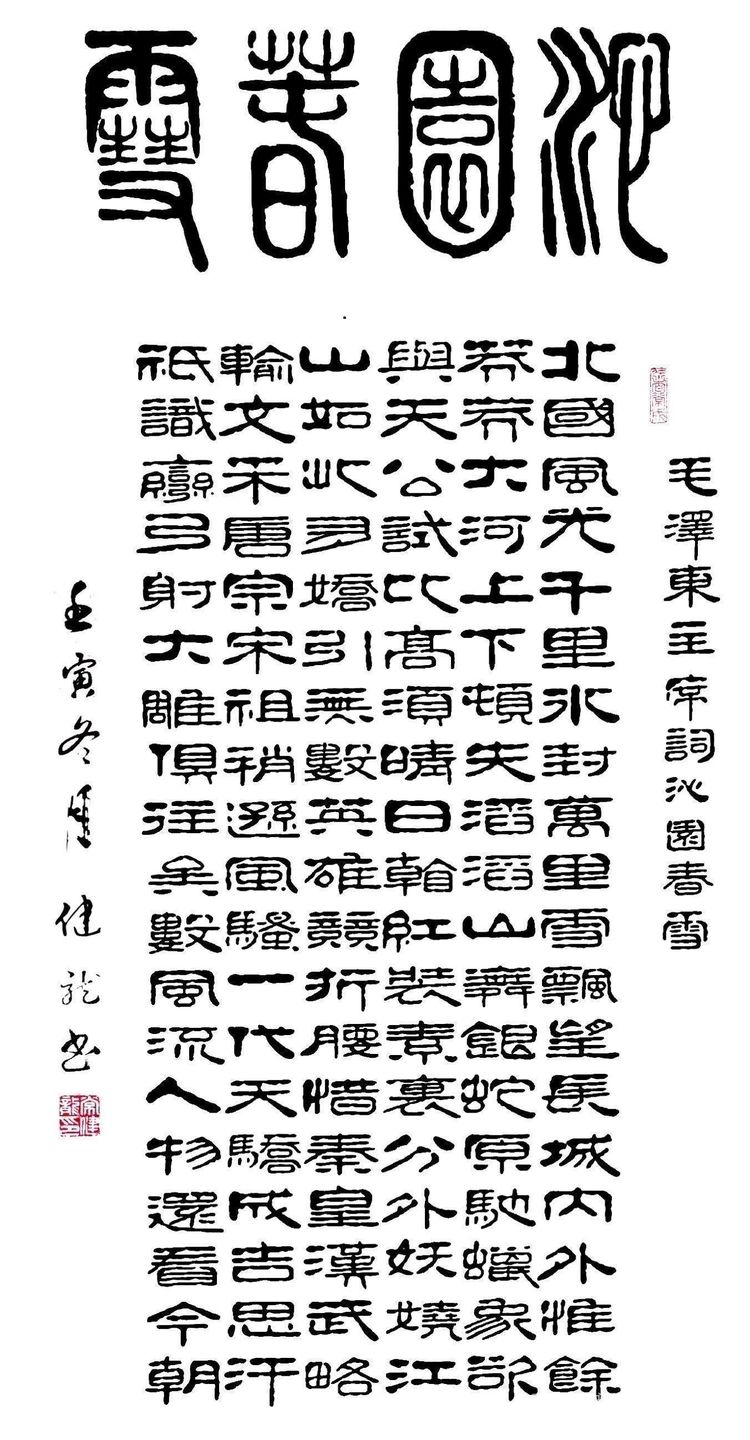 沁園春雪
毛澤東主席詞沁園春雪
北國風光千里冰封萬里雪飄望長城內外惟餘
莽莽大河上下頓失滔滔山舞銀蛇原馳蠟象欲
與天公試比高須晴日看紅裝素裹分外妖嬈江
山如此多嬌引無數英雄競折腰惜秦皇漢武略
輸文采唐宗宋祖稍遜風騷一代天驕成吉思汗
祇識彎弓射大雕俱往矣數風流人物還看今朝
壬寅冬月 健龍書
常健龍印